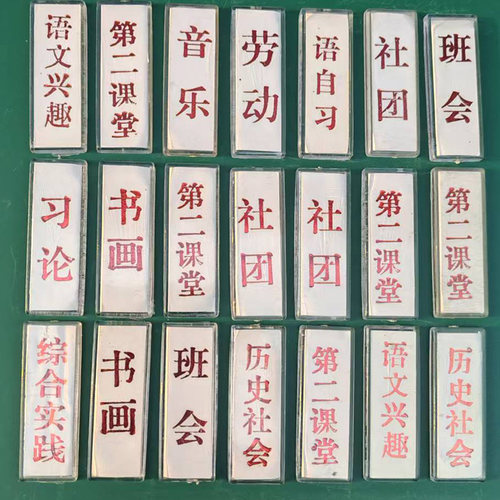 语文兴趣
第二课堂
音乐
劳动
语自习
社团
班会
习论
书画
第二课堂
社团
社团
第二课堂
第二课堂
综合实践
书画
班会
历史社会
第二课堂
语文兴趣
历史社会